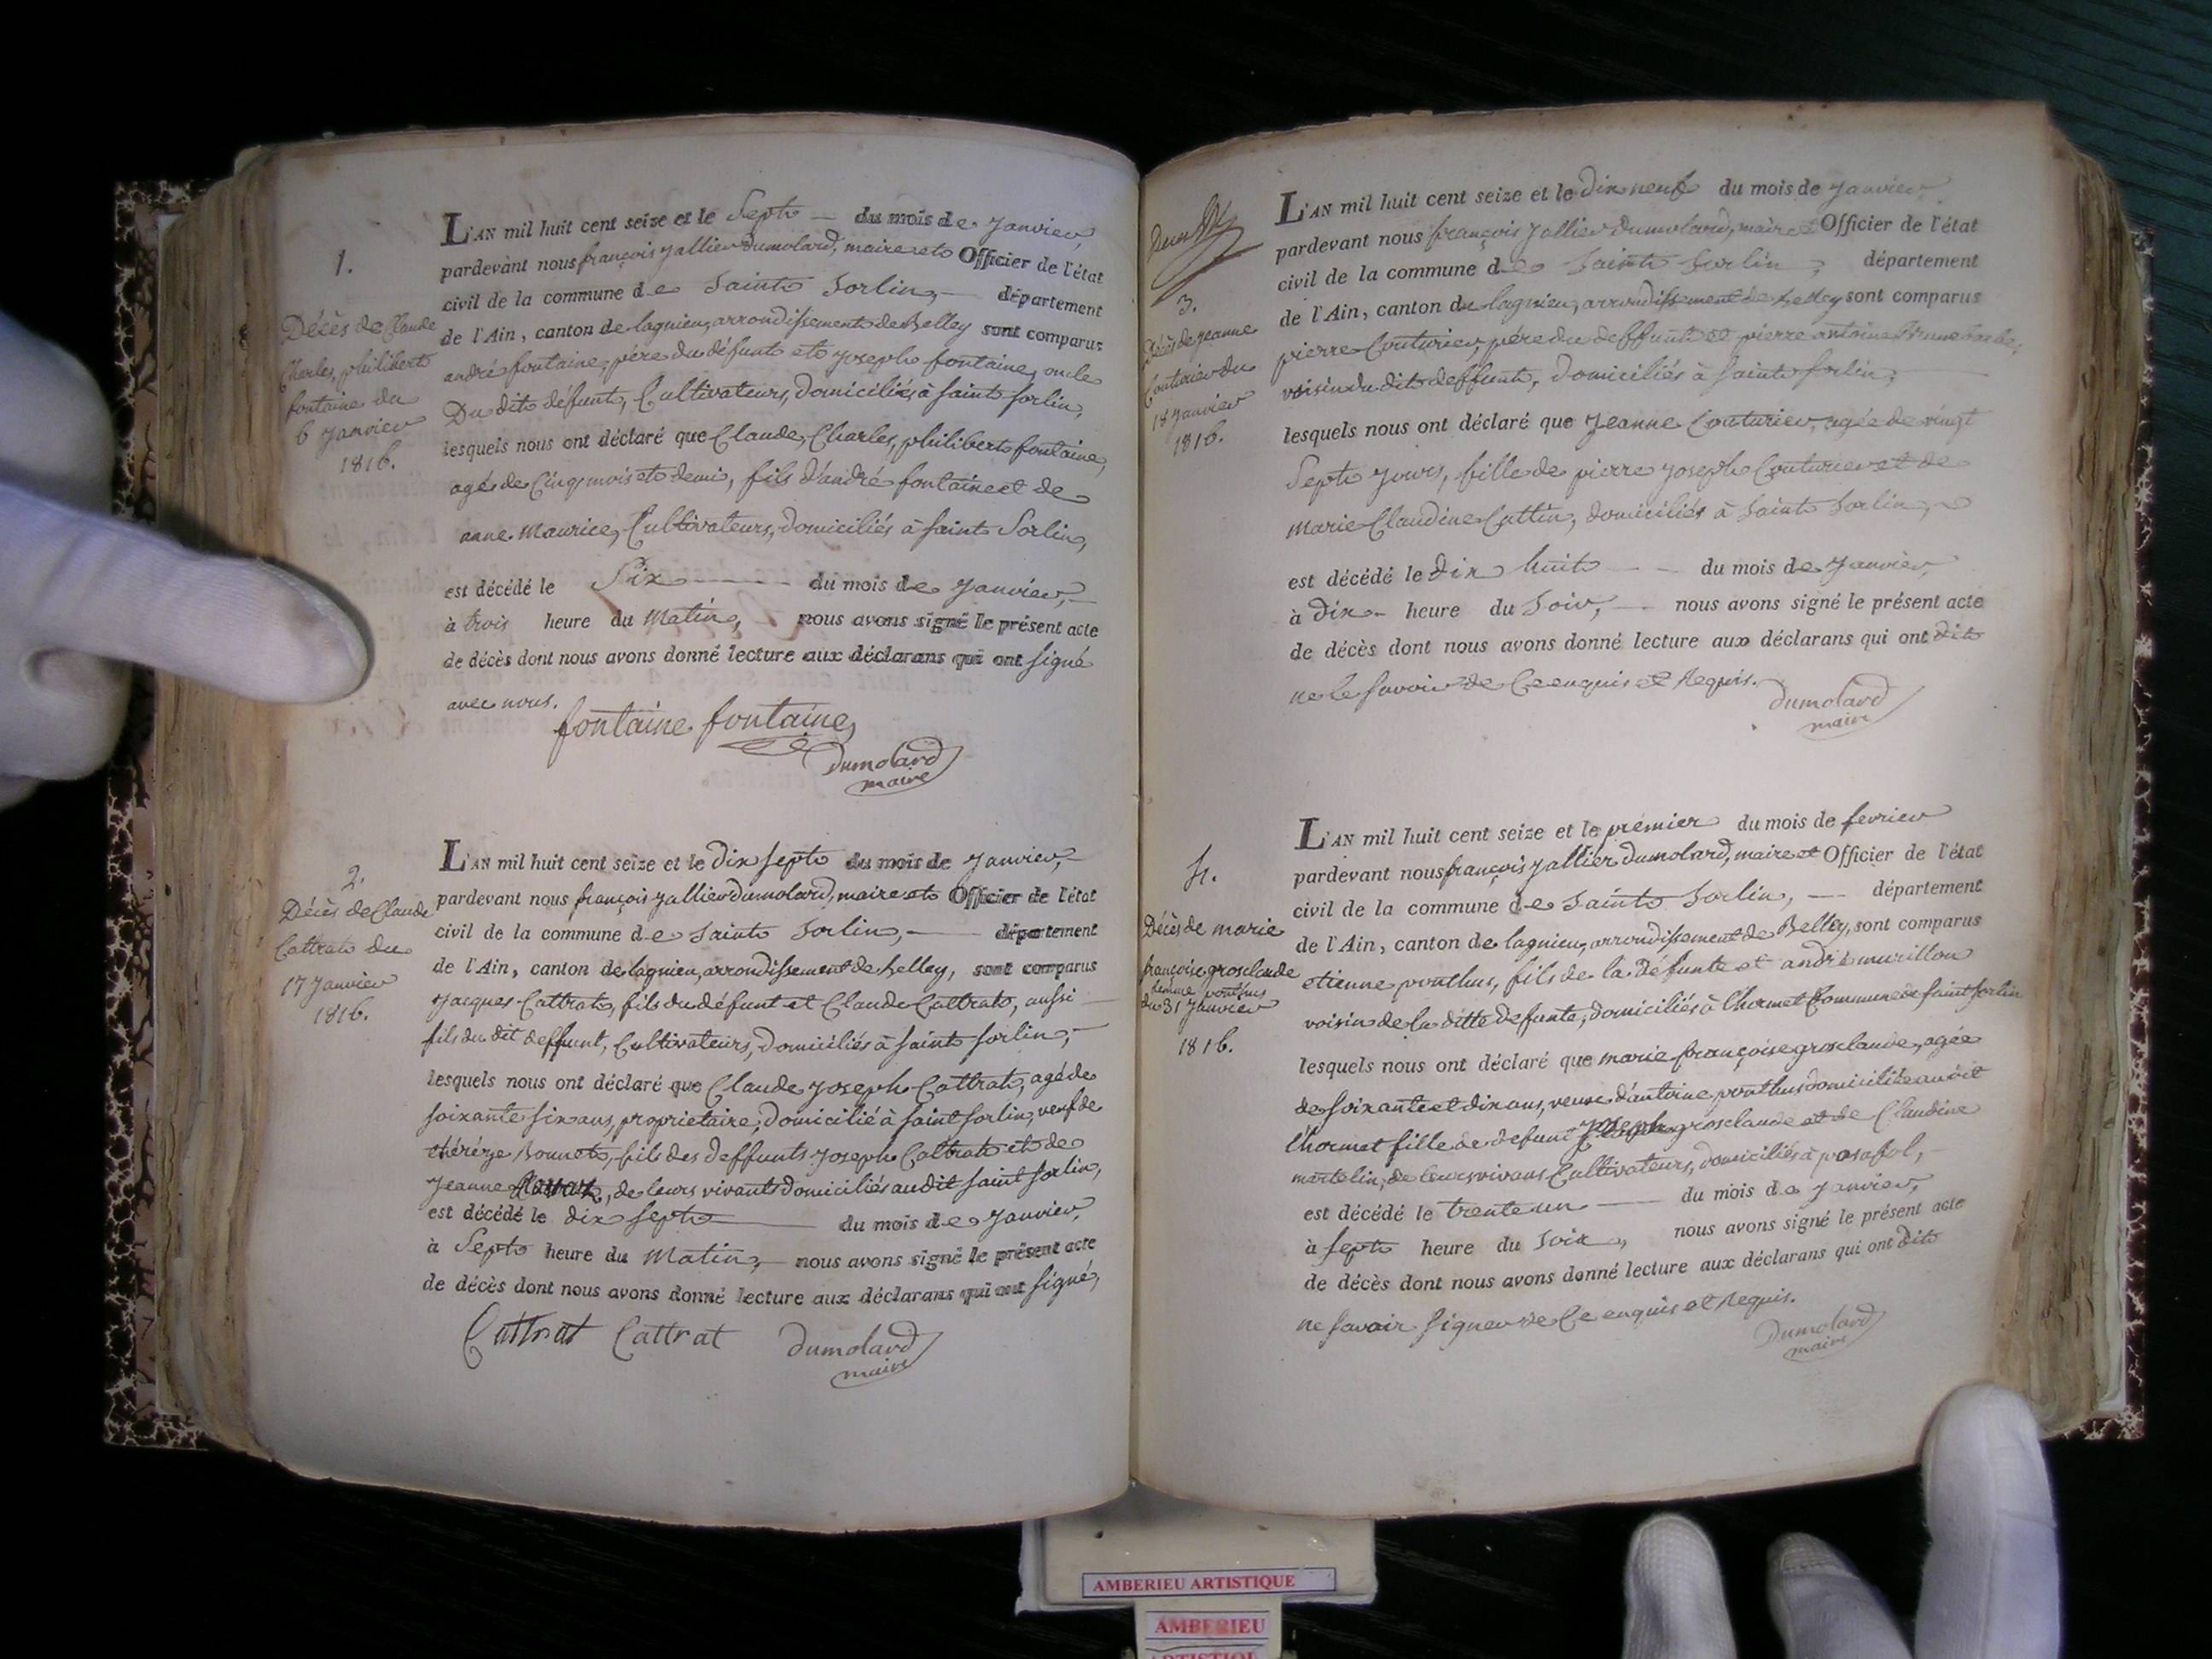 1.
Décès de Claude
Charles, philibert
fontaine du
6 Janvier
1816.
L'AN mil huit cent seize et le Sept — du mois de Janvier,
pardevant nous françois Jallier dumolard, maire et Officier de l'état
civil de la commune de Saint Sorlin, — département
de l'Ain, canton de lagnieu, arrondissement de Belley sont comparus
andré fontaine, père du défunt et Joseph fontaine, oncle
Du dit défunt, Cultivateurs, domiciliés à saint sorlin,
lesquels nous ont déclaré que Claude, Charles, philibert fontaine,
agé de Cinq mois et demi, fils d'andré fontaine et de
anne Maurice, Cultivateurs, domiciliés à saint Sorlin,
est décédé le Six du mois de Janvier, —
à trois heure du Matin, nous avons signé le présent acte
de décès dont nous avons donné lecture aux déclarans qui ont signé
avec nous.
fontaine fontaine
Dumolard
maire
2.
Décès de Claude
Cattrat du
17 Janvier
1816.
L'AN mil huit cent seize et le Dix sept du mois de Janvier, —
pardevant nous françois Jallier dumolard, maire et Officier de l'état
civil de la commune de Saint Sorlin, — département
de l'Ain, canton de lagnieu, arrondissement de belley, sont comparus
Jacques Cattrat, fils du défunt et Claude Cattrat, aussi
fils du dit deffunt, Cultivateurs, Domiciliés à saint sorlin, —
lesquels nous ont déclaré que Claude Joseph Cattrat, agé de
soixante six ans, proprietaire, domicilié à saint sorlin, veuf de
thérèze Bonnet, fils des deffunts Joseph Cattrat et de
Jeanne , de leurs vivants domiciliés audit saint sorlin,
est décédé le dix sept du mois de Janvier,
à Sept heure du Matin, — nous avons signé le présent acte
de décès dont nous avons donné lecture aux déclarans qui ont signé,
Cattrat Cattrat Dumolard
maire
3.
Décès de Jeanne
Couturier du
18 Janvier
1816.
L'AN mil huit cent seize et le Dix neuf du mois de Janvier,
pardevant nous françois Jallier Dumolard, maire et Officier de l'état
civil de la commune de Saint Sorlin, département
de l'Ain, canton de lagnieu, arrondissement de belley sont comparus
pierre Couturier, père du deffunt et pierre antoine
voisin du dit deffunt, domiciliés à saint sorlin,
lesquels nous ont déclaré que Jeanne Couturier, agée de vingt
Sept Jours, fille de pierre Joseph Couturier et de
Marie Claudine Cattin, domiciliés à Saint Sorlin,
est décédé le dix huit — — du mois de Janvier,
à Dix heure du Soir, — nous avons signé le présent acte
de décès dont nous avons donné lecture aux déclarans qui ont dit
ne le savoir de Ce enquis et Requis.
Dumolard
maire
4.
Décès de marie
françoise grosclaude
femme ponthus
du 31 Janvier
1816.
L'AN mil huit cent seize et le premier du mois de fevrier
pardevant nous françois Jallier Dumolard, maire et Officier de l'état
civil de la commune de Saint Sorlin, — département
de l'Ain, canton de lagnieu, arrondissement de Belley, sont comparus
etienne ponthus, fils de la défunte et andré murillon
voisin de la ditte defunte, domiciliés à l'hormet Commune de saint sorlin
lesquels nous ont déclaré que marie françoise grosclaude, agée
de soixante et dix ans, veuve d'antoine ponthus domiciliée audit
l'hormet fille de defunt Joseph grosclaude et de Claudine
martelin, de leurs vivans Cultivateurs, domiciliés à posafol, —
est décédé le trente un — du mois de Janvier,
à sept heure du soir, nous avons signé le présent acte
de décès dont nous avons donné lecture aux déclarans qui ont dit
ne savoir signer de Ce enquis et Requis.
Dumolard
maire
AMBERIEU ARTISTIQUE
AMBERIEU
ARTISTIQUE